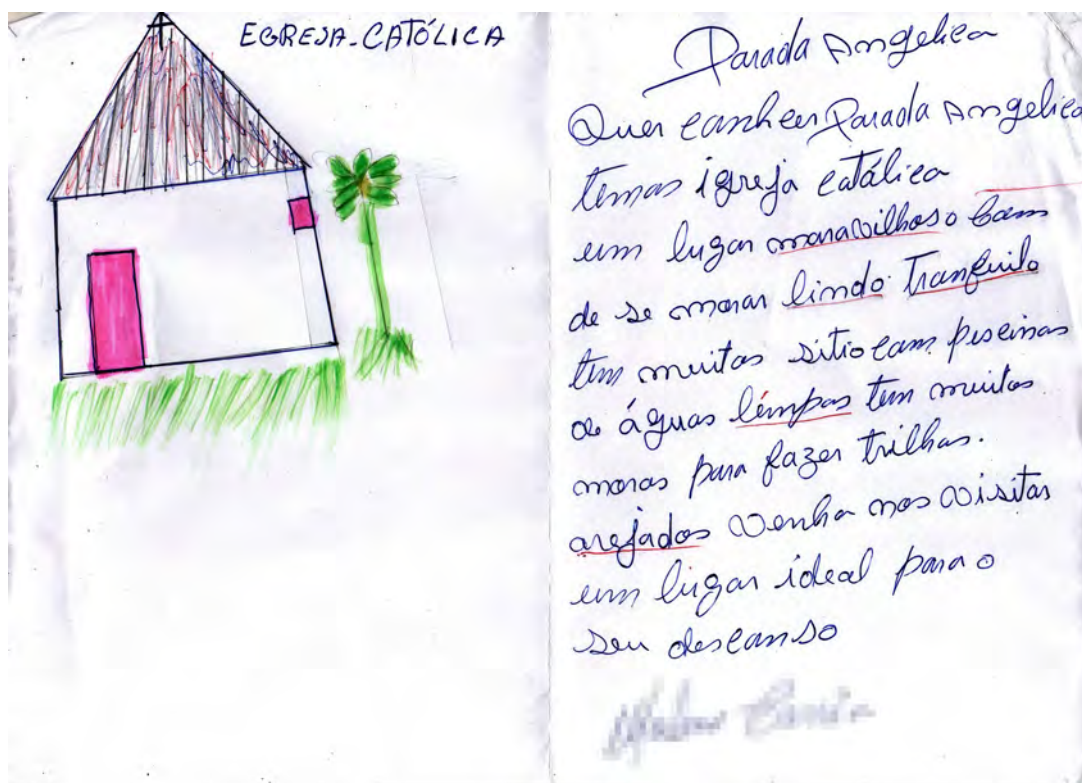 EGREJA-CATÓLICA
Parada Angelica
Quer canhecer Parada Angelica
temos igreja catálica
um lugar maravilhoso bam
de se morar lindo tranquilo
tem muitas sitio cam piscinas
de águas lémpas tem muitos
moros para fazer trilhas.
arejados venha nos visitar
um lugar ideal para o
seu descanso